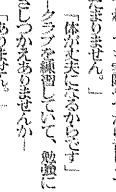 たまりません。」
「体が丈夫になるからです」
ークラブを練習していて、勉強に
さしつかえありませんかー
「ありません。」